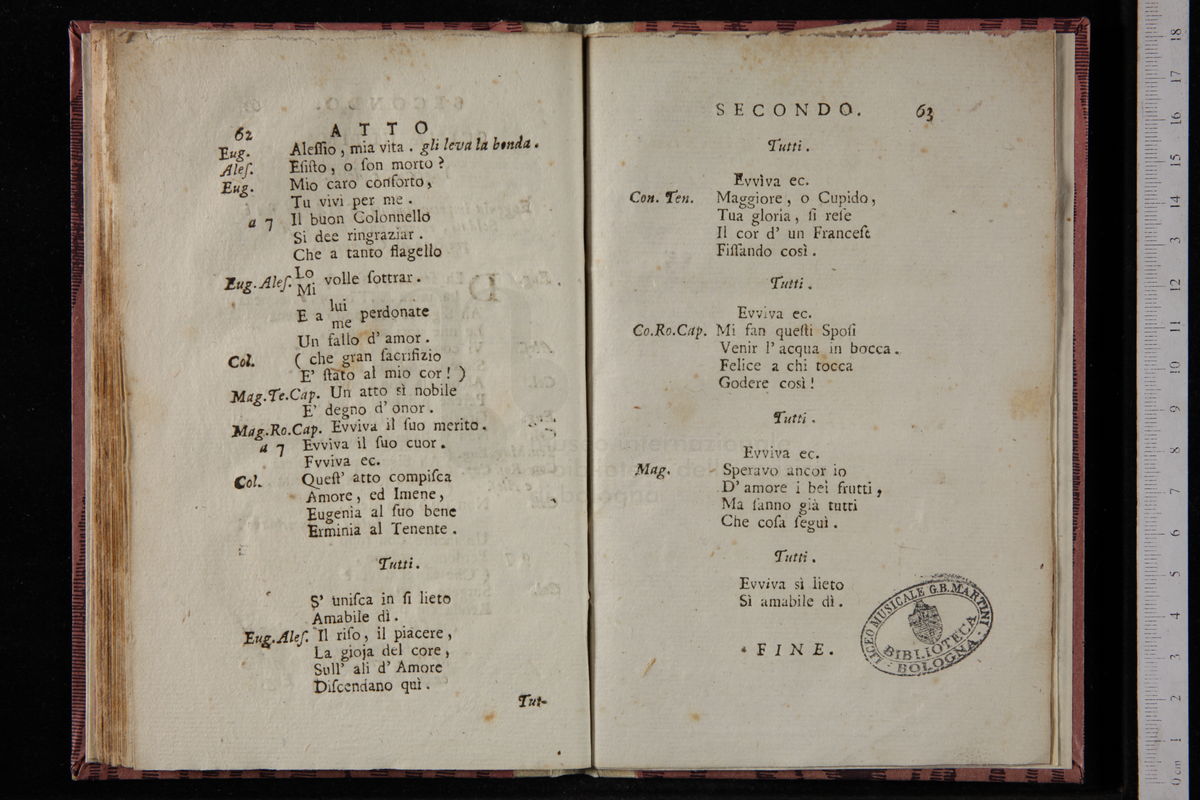 62
ATTO
Eug. Aleſſio, mia vita. gli leva la benda.
Aleſ. Eſiſto, o ſon morto?
Eug. Mio caro conforto,
Tu vivi per me.
a 7 Il buon Colonnello
Si dee ringraziar.
Che a tanto flagello
Eug. Aleſ. Lo
Mi volle ſottrar.
E a lui
me perdonate
Un fallo d' amor.
Col. ( che gran ſacrifizio
E' ſtato al mio cor! )
Mag.Te.Cap. Un atto sì nobile
E' degno d' onor.
Mag.Ro.Cap. Evviva il ſuo merito.
a 7 Evviva il ſuo cuor.
Fvviva ec.
Col. Queſt' atto compiſca
Amore, ed Imene,
Eugenia al ſuo bene
Erminia al Tenente.
Tutti.
S' uniſca in ſi lieto
Amabile dì.
Eug.Aleſ. Il riſo, il piacere,
La gioja del core,
Sull' ali d' Amore
Diſcendano quì.
Tut-
SECONDO. 63
Tutti.
Evvìva ec.
Con. Ten. Maggiore, o Cupido,
Tua gloria, ſi reſe
Il cor d' un Franceſe
Fiſſando così.
Tutti.
Evviva ec.
Co.Ro.Cap. Mi fan queſti Spoſi
Venir l' acqua in bocca.
Felice a chi tocca
Godere così!
Tutti.
Evviva ec.
Mag. Speravo ancor io
D' amore i bei frutti,
Ma ſanno già tutti
Che coſa ſeguì.
Tutti.
Evviva sì lieto
Sì amabile dì.
FINE.
LICEO MUSICALE G.B. MARTINI
BIBLIOTECA
BOLOGNA
0 cm 1 2 3 4 5 6 7 8 9 10 11 12 13 14 15 16 17 18